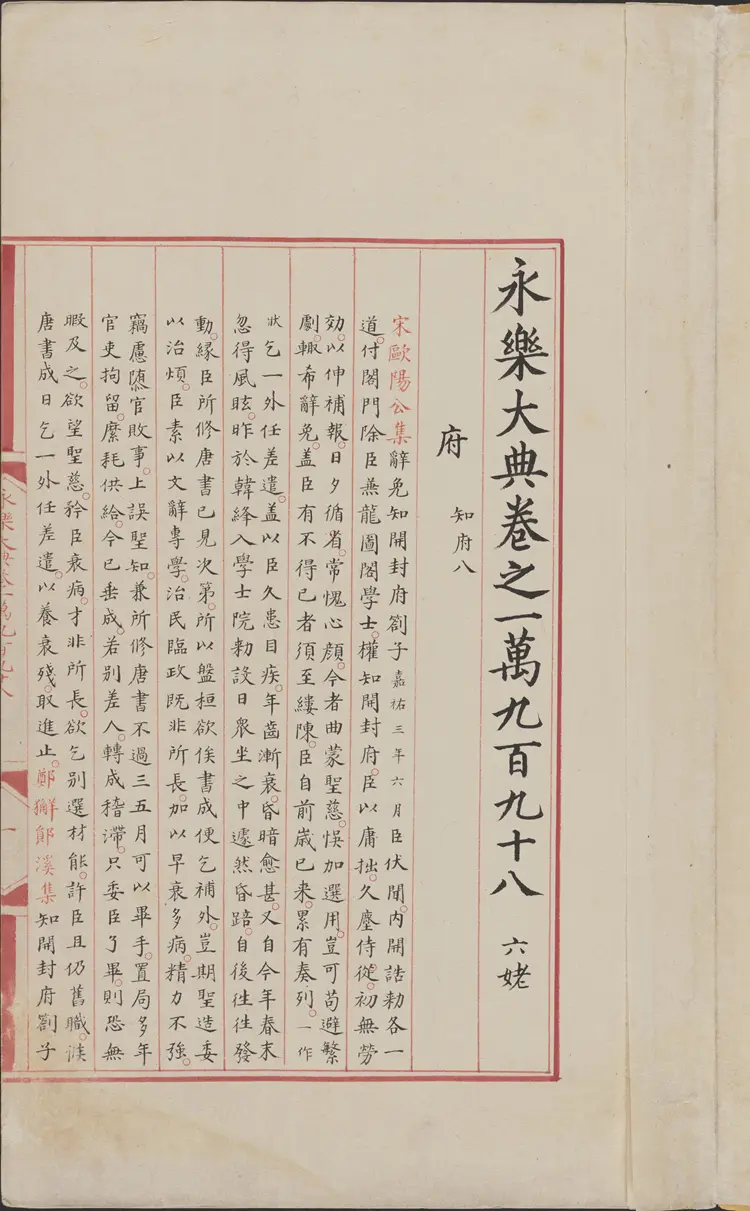 永樂大典卷之一萬九百九十八 六姥
府 知府八
宋歐陽公集辭免知開封府劄子嘉祐三年六月臣伏聞。内開誥勑各一
道。付閤門除臣兼龍圖閣學士。權知開封府。臣以庸拙。久塵侍從。初無勞
効。以伸補報。日夕循省。常愧心顔。今者曲蒙聖慈。悞加選用。豈可苟避繁
劇。輙希辭免。蓋臣有不得已者須至縷陳。臣自前歲已来。累有奏列。一作
狀乞一外任差遣。蓋以臣久患目疾。年齒漸衰。昏暗愈甚。又自今年春末
忽得風眩。昨於韓絳入學士院勑設日衆坐之中遽然昏踣。自後往往發
動。縁臣所修唐書已見次第。所以盤桓欲俟書成便乞補外。豈期聖造委
以治煩。臣素以文辭專學。治民臨政既非所長。加以早衰多病。精力不強。
竊慮隳官敗事。上誤聖知。兼所修唐書不過三五月可以畢手。置局多年
官吏拘留。縻耗供給。今已垂成。若別差人。轉成稽滯。只委臣了畢。則恐無
暇及之。欲望聖慈。矜臣衰病。才非所長。欲乞別選材能。許臣且仍舊職。候
唐書成日乞一外任差遣。以養衰殘。取進止。鄭獬鄖溪集知開封府劄子
永樂大典卷一萬九百九十八
一